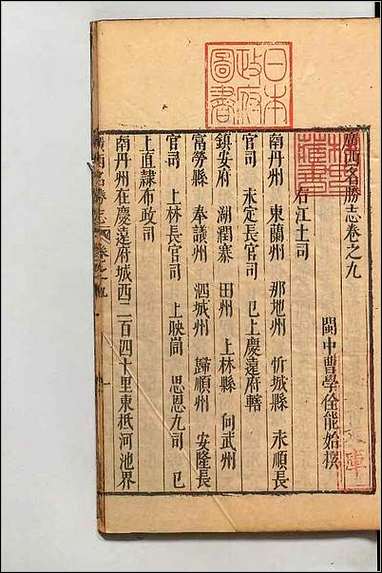 廣西名勝志卷之九
閩中曹學佺能始撰
右江土司
南丹州 東蘭州 那地州 忻城縣 永順長
官司 永定長官司 已上慶遠府轄
鎮安府 湖潤寨 田州 上林縣 向武州
富勞縣 奉議州 泗城州 歸順州 安隆長
官司 上林長官司 上映峝 思恩九司 已
上直隸布政司
南丹州在慶遠府城西二百四十里東抵河池界
廣西名勝志 卷之九
日本
政府
圖書
林氏
藏書
文庫